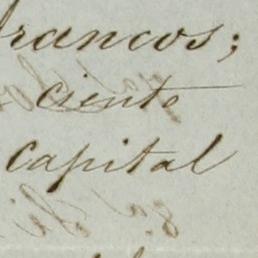 francos;
ciente
capital